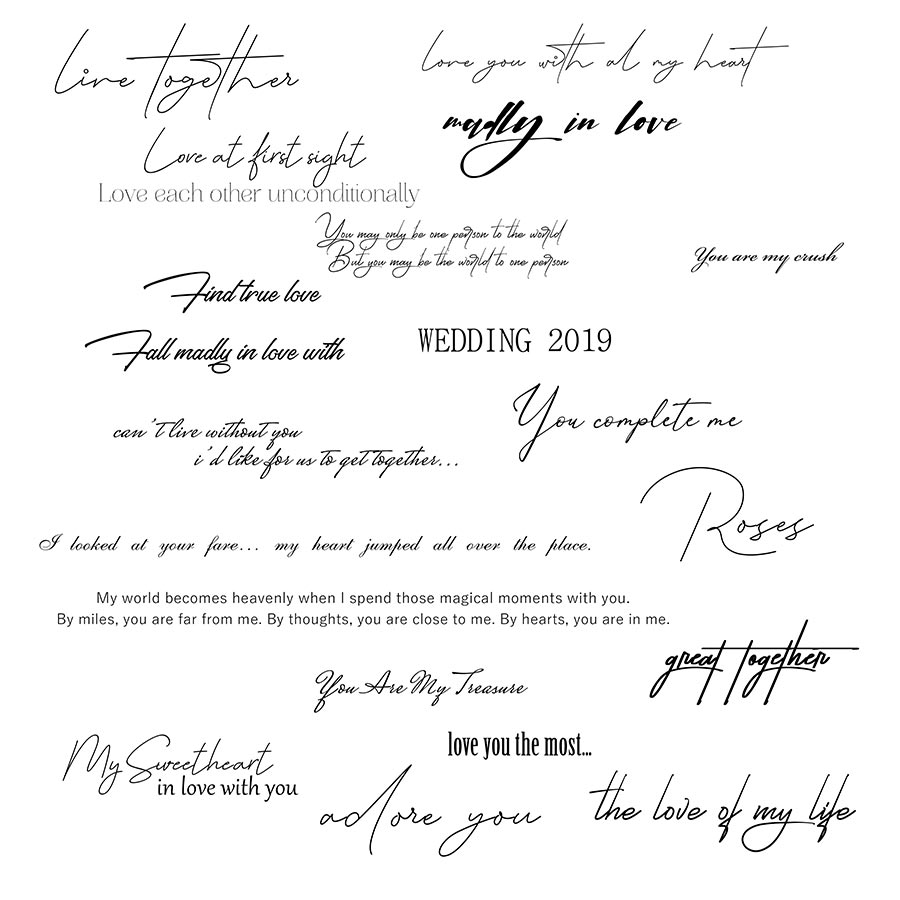 Live together
love you with al my heart
madly in love
Love at first sight
Love each other unconditionally
You may only be one person to the world
But you may be the world to one person
You are my crush
Find true love
Fall madly in love with
WEDDING 2019
You complete me
can't live without you
i'd like for us to get together...
Roses
I looked at your fare... my heart jumped all over the place.
My world becomes heavenly when I spend those magical moments with you.
By miles, you are far from me. By thoughts, you are close to me. By hearts, you are in me.
great together
You Are My Treasure
love you the most...
My Sweetheart
in love with you
adore you
the love of my life